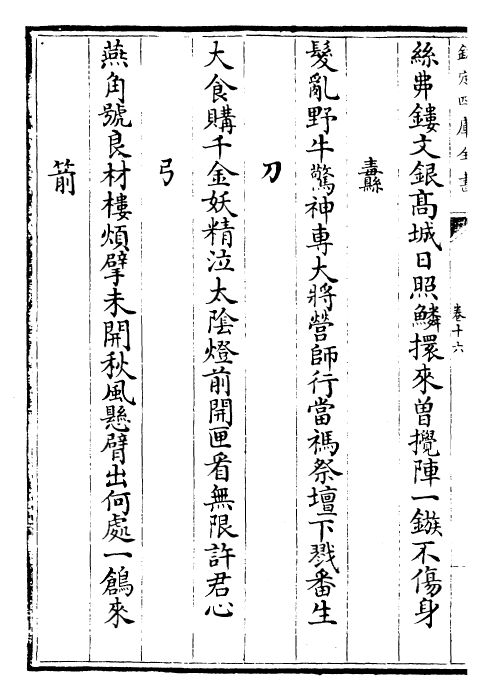 欽定四庫全書
卷十六
絲弗鏤文銀高城日照鱗擐來曾攪陣一鏃不傷身
纛
髮亂野牛驚神專大將營師行當禡祭壇下戮番生
刀
大食購千金妖精泣太陰燈前開匣看無限許君心
弓
燕角號良材樓煩擘未開秋風懸臂出何處一鶬來
箭